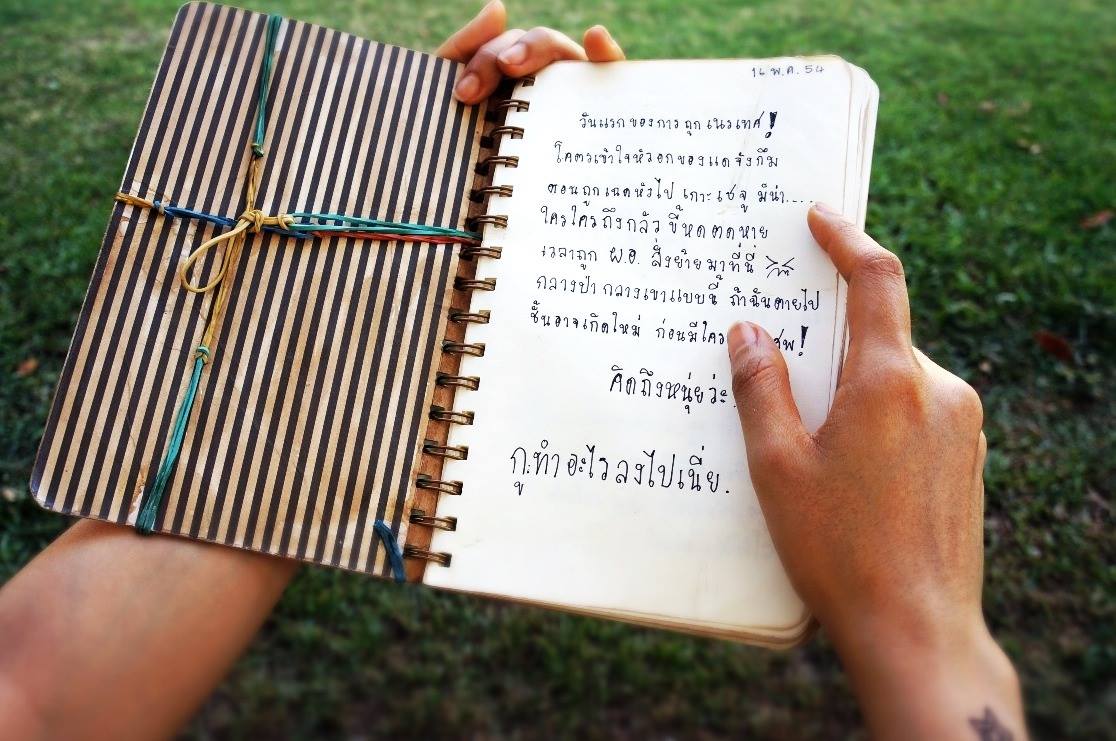 16 พ.ค. 54
วันแรกของการถูกเนรเทศ!
โคตรเข้าใจหัวอกของแดจังกึม
ตอนถูกเฉดหัวไป เกาะเชจู มิน่า....
ใครใครถึงกลัว ขี้หดตดหาย
เวลาถูก ผ.อ. สั่งย้ายมาที่นี่
กลางป่ากลางเขาแบบนี้ ถ้าฉันตายไป
ชั้นอาจเกิดใหม่ ก่อนมีใคร ศพ!
คิดถึงหนุ่ยว่ะ.
กู:ทำอะไรลงไปเนี่ย.